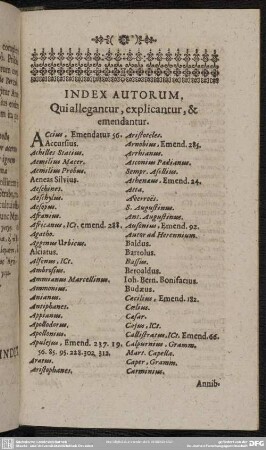 INDEX AUTORUM,
Qui allegantur, explicantur, &
emendantur.
ACtius, Emendatur 56.
Accursius.
Achilles Statius.
Aemilius Macer.
Aemilius Probus.
Aeneas Silvius.
Aeschines.
Aeschylus.
Aesopus.
Afranius.
Africanus, ICt. emend. 288.
Agatho.
Aggenus Urbicus.
Alciatus.
Alfenus, ICt.
Ambrosius.
Ammianus Marcellinus.
Ammonius.
Anianus.
Antiphanes.
Appianus.
Apollodorus.
Apollonius.
Apulejus, Emend. 237. 19.
56. 85. 95. 228. 302. 312.
Aratus.
Aristophanes.
Aristoteles.
Arnobius, Emend. 285.
Arrhianus.
Asconius Padianus.
Sempr. Asellius.
Athenaeus, Emend. 24.
Atta.
Averroës.
S. Augustinus.
Ant. Augustinus.
Ausonius, Emend. 92.
Autor ad Herennium.
Baldus.
Bartolus.
Bassus.
Beroaldus.
Ioh. Bern. Bonifacius.
Budaeus.
Caecilius, Emend. 182.
Caelius.
Caesar.
Cajus, ICt.
Callistratus, ICt. Emend. 66.
Calpurnius, Gramm.
Mart. Capella.
Caper, Gramm.
Carminius.
Annib.
INDEX